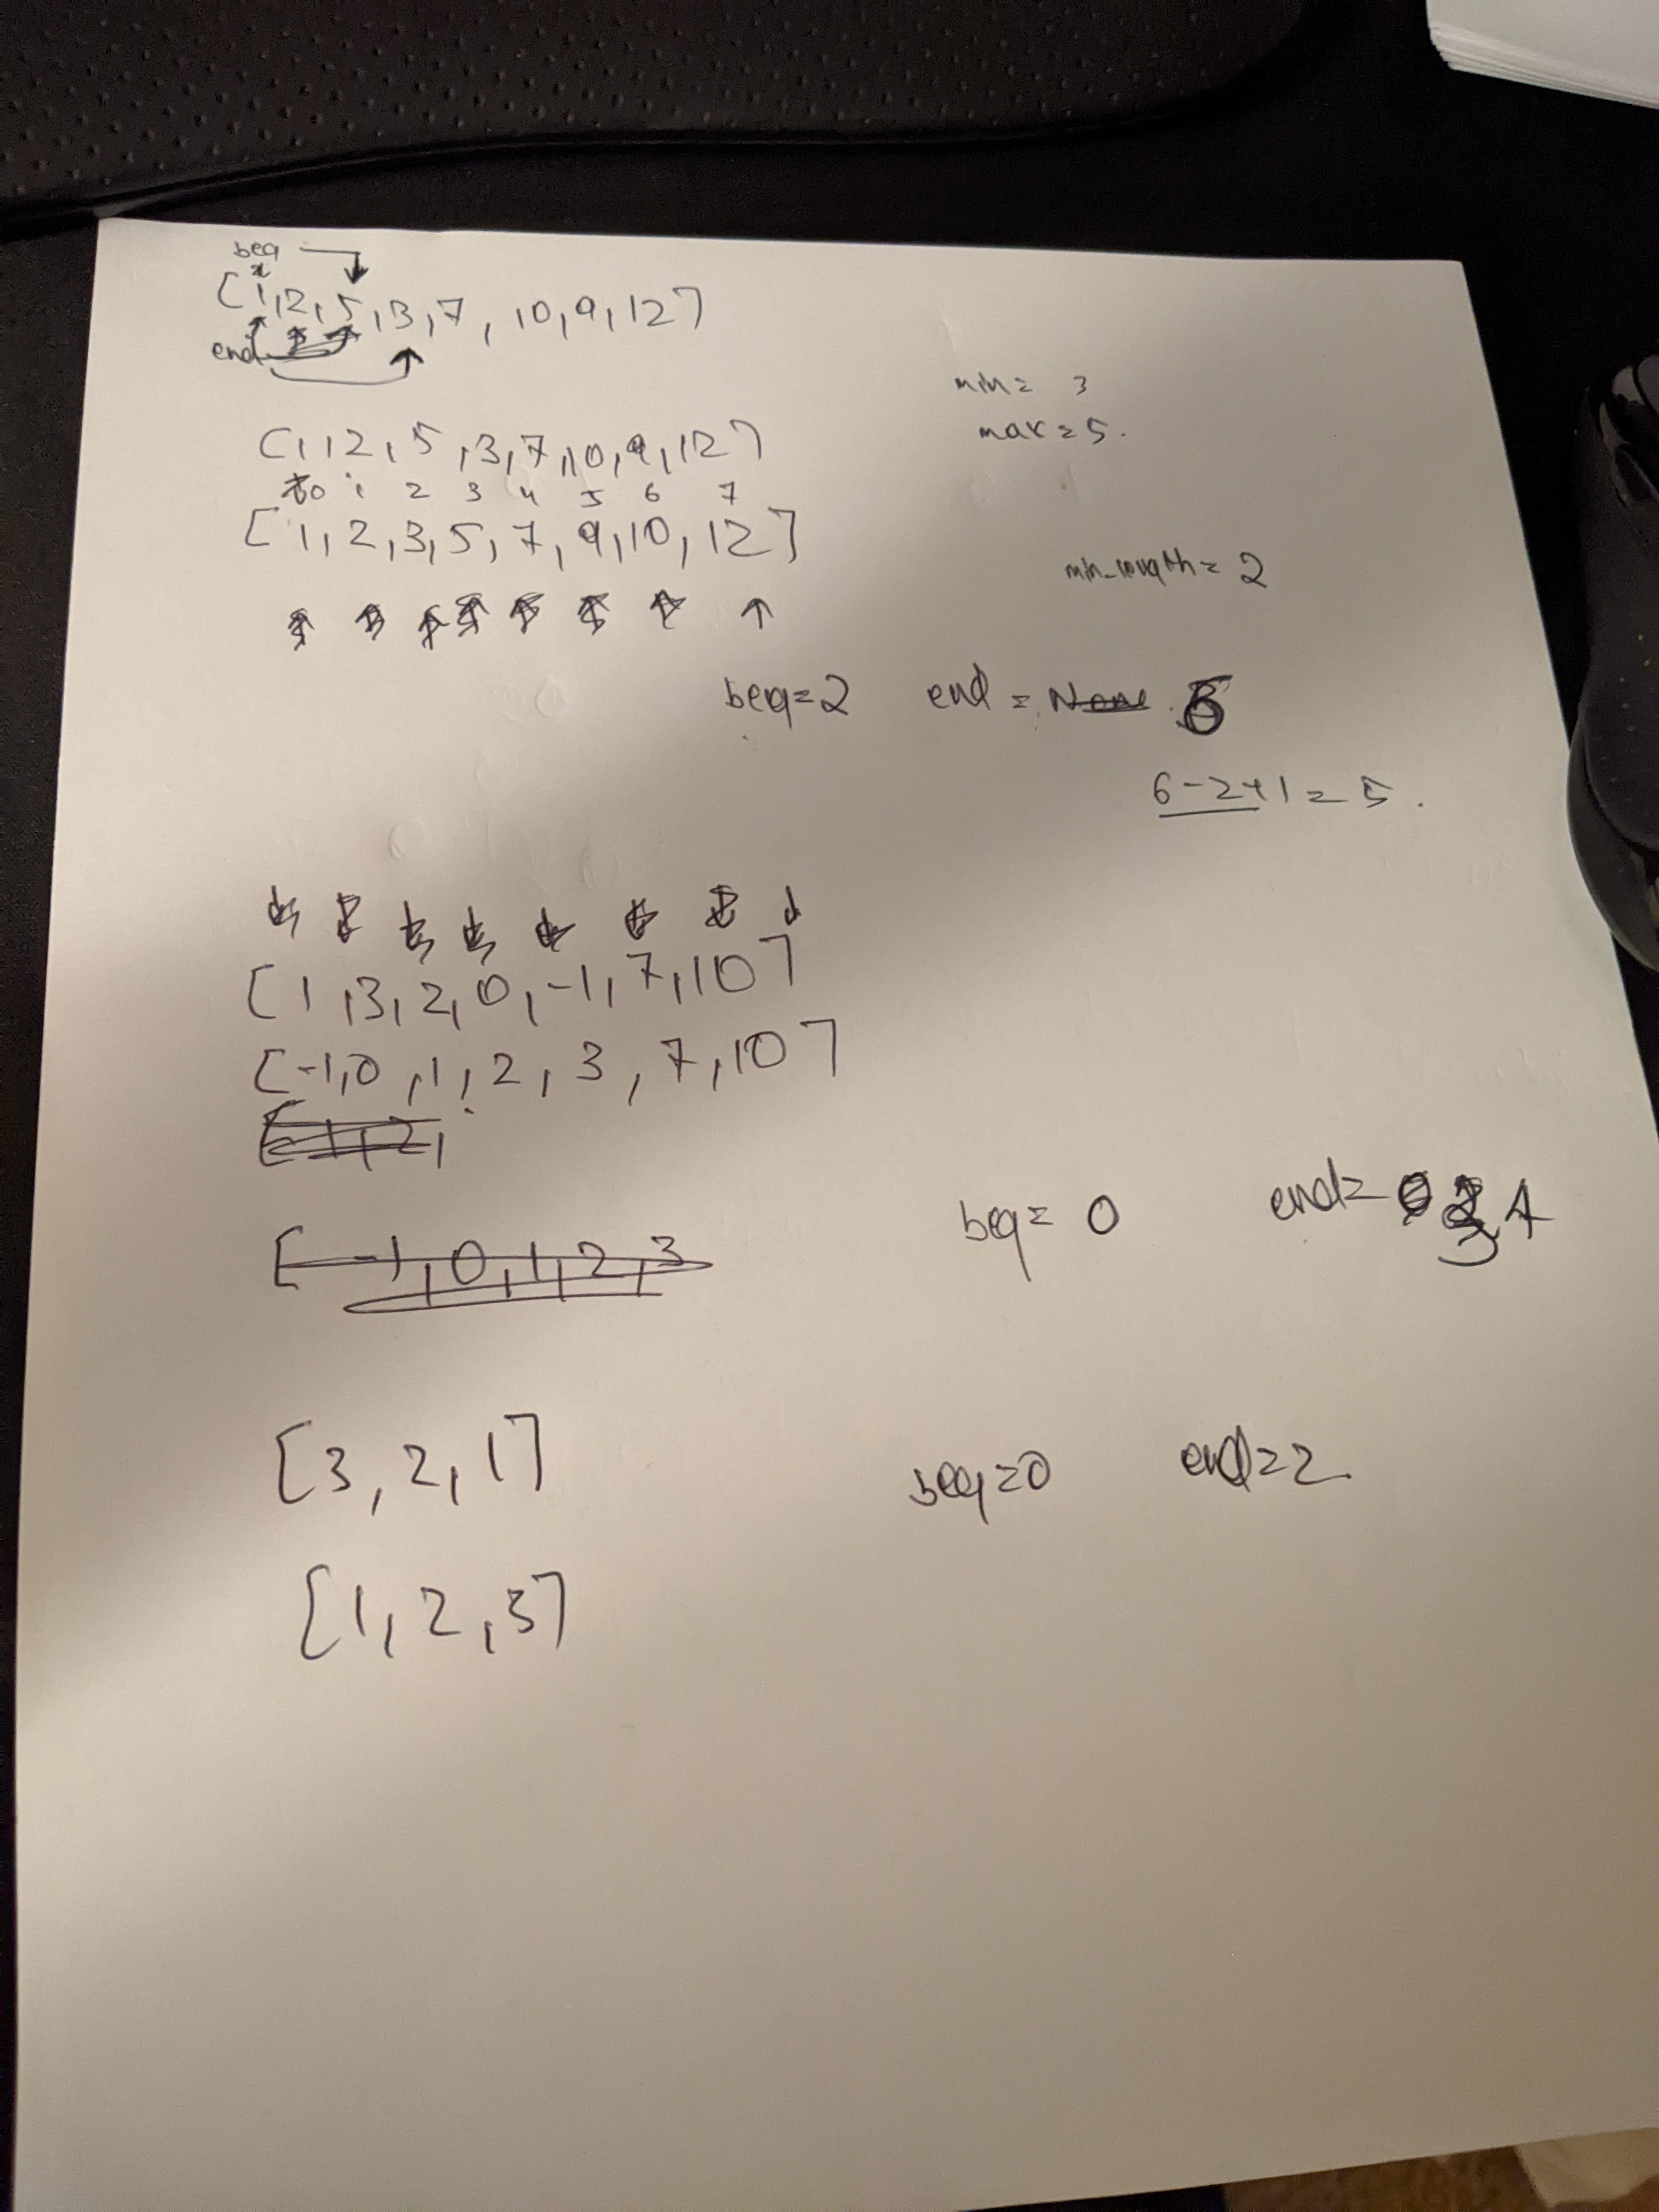 beg
[1,2,5,3,7,10,9,12]
end
min= 3
max=5.
[1,2,5,3,7,10,9,12]
0 1 2 3 4 5 6 7
[1,2,3,5,7,9,10,12]
min_length=2
beg=2 end = None 6
6-2+1=5.
[1,3,2,0,-1,7,10]
[-1,0,1,2,3,7,10]
[-1,2,
[-1,0,1,2,3
beg= 0 end= 0 2 3 4
[3,2,1] beg=0 end=2.
[1,2,3]